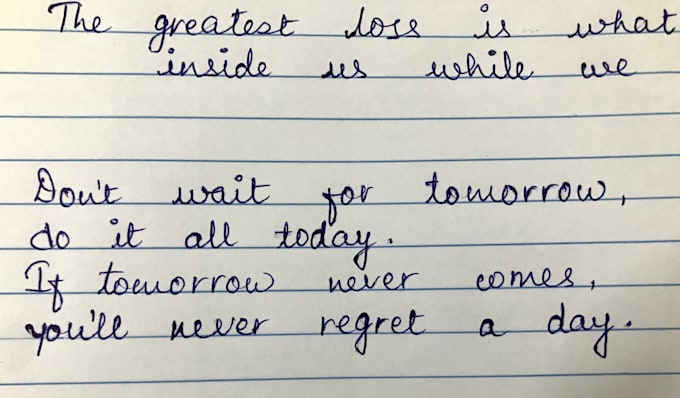 The greatest loss is what
inside us while we
Don't wait for tomorrow,
do it all today.
If tomorrow never comes,
you'll never regret a day.